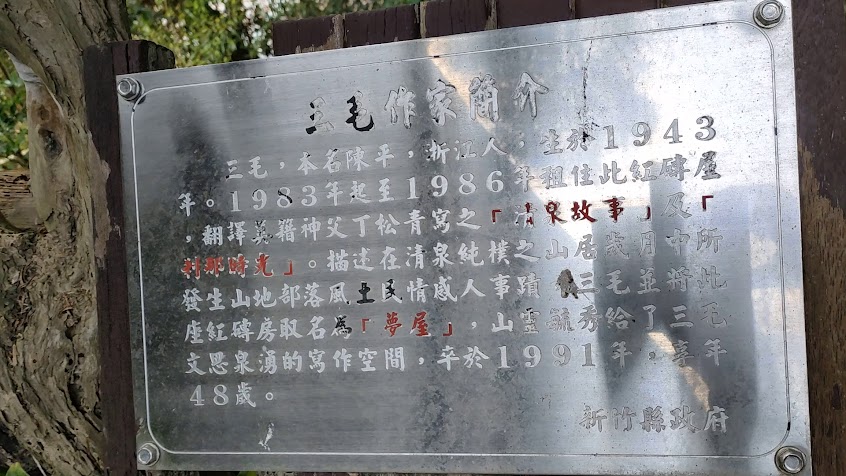 三毛作家簡介
三毛，本名陳平，浙江人，生於１９４３
年。１９８３年起至１９８６年租住此紅磚屋
，翻譯英籍神父丁松青寫之「清泉故事」及「
剎那時光」。描述在清泉純樸之山居歲月中所
發生山地部落風土民情感人事蹟，三毛並將此
座紅磚房取名為「夢屋」，山靈毓秀給了三毛
文思泉湧的寫作空間，卒於１９９１年，享年
４８歲。
新竹縣政府